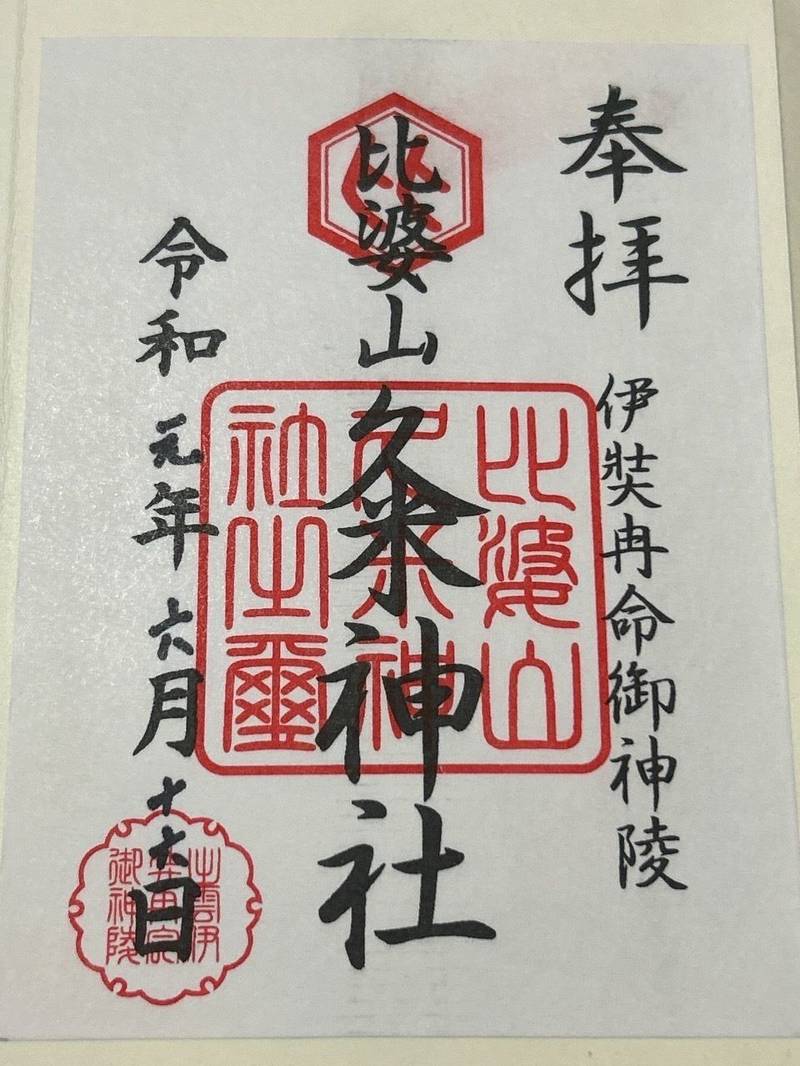 奉拝
伊奘冉命御神陵
比婆山久米神社
令和元年六月十六日
比婆山
久米神
社之璽
出雲伊
御神陵